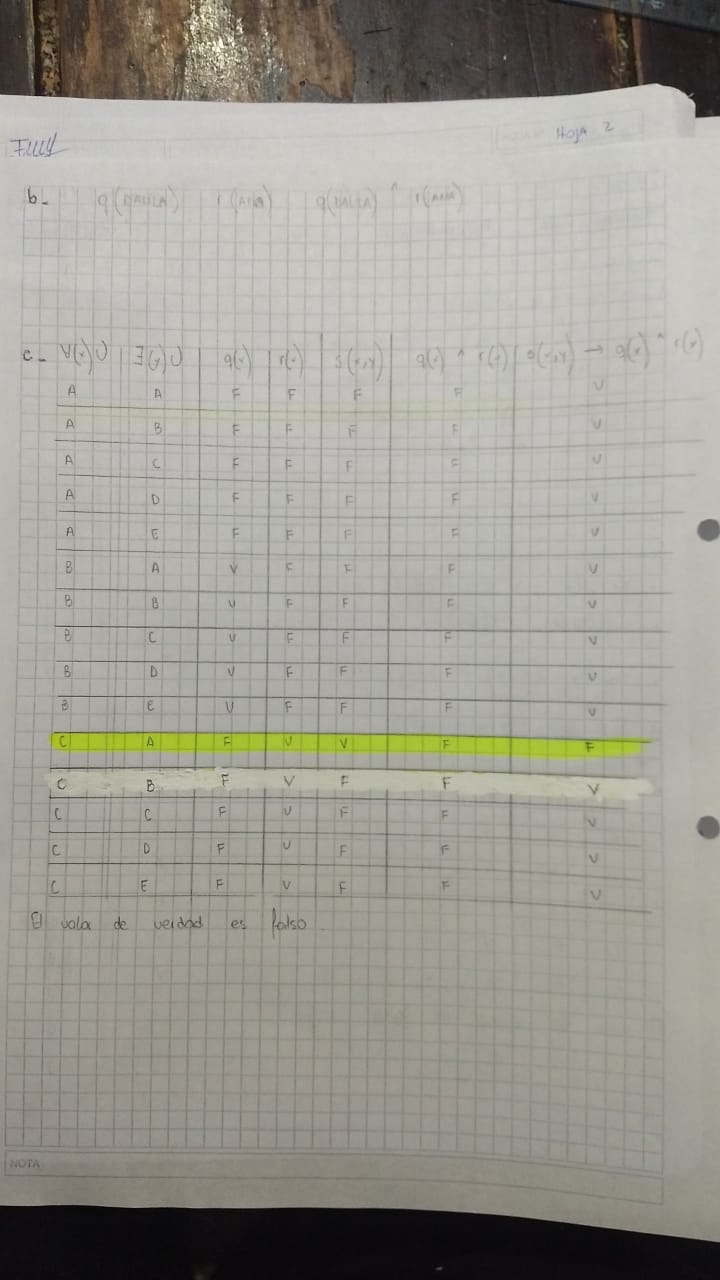 HOJA 2
b- q(PAULA) r(ANA) q(PAULA) ^ r(ANA)
c- ∀(x)U ∃(y)U q(x) r(x) s(x,y) q(x) ^ r(x) s(x,y) → q(x) ^ r(x)
A A F F F F V
A B F F F F V
A C F F F F V
A D F F F F V
A E F F F F V
B A V F F F V
B B V F F F V
B C V F F F V
B D V F F F V
B E V F F F V
C A F V V F F
C B F V F F V
C C F V F F V
C D F V F F V
C E F V F F V
El valor de verdad es falso.
NOTA